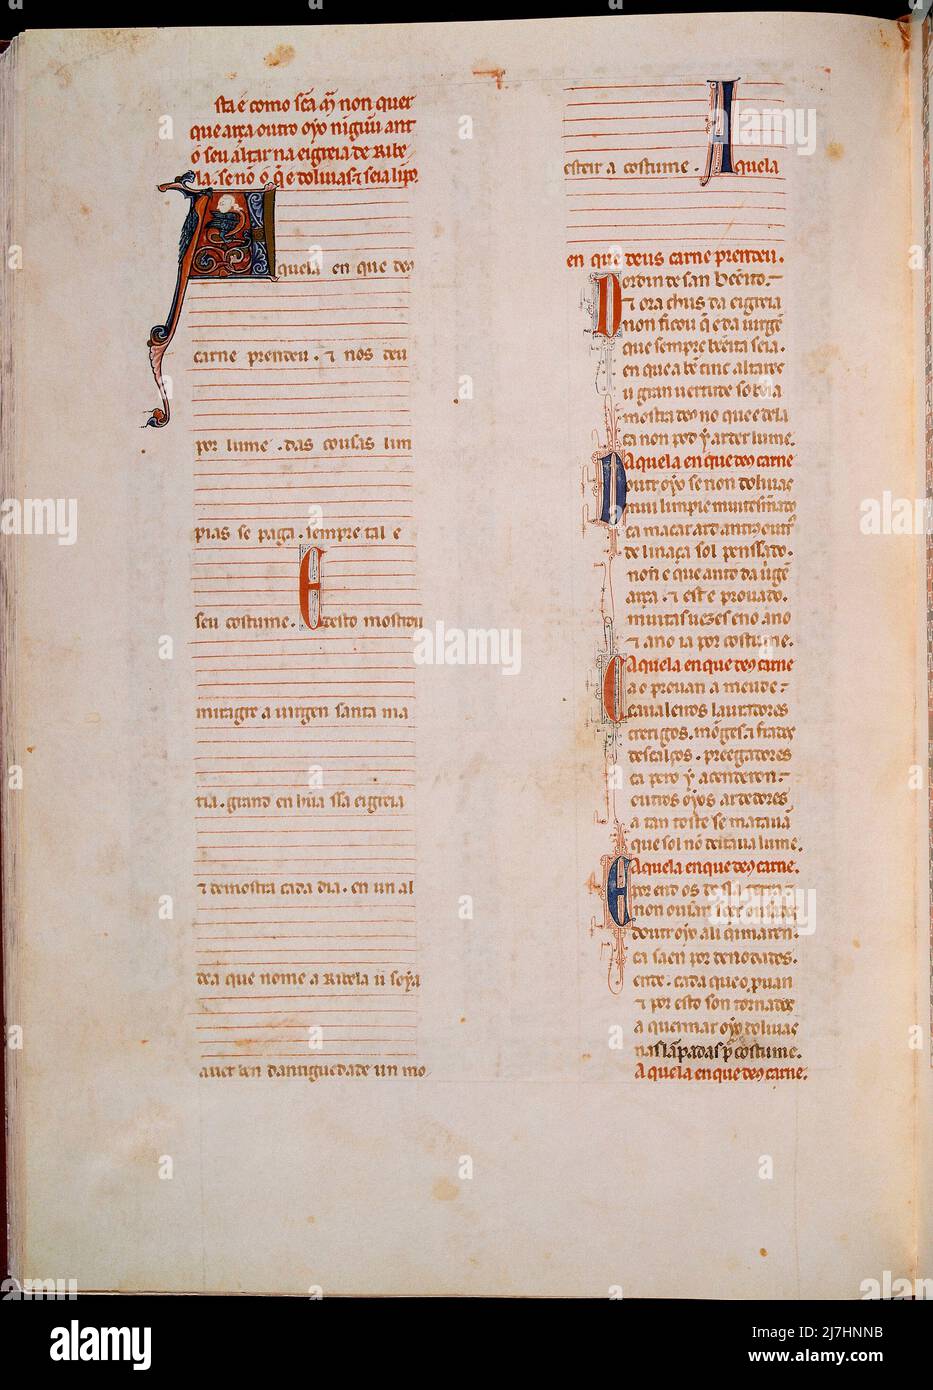 sta e como sc̃a m̃ non quer
que arça outro oyo nigũu ant
o seu altar na eigreia de Ribe
la. se nõ o q̃ é dolivas ⁊ seia lipo.
Aquela en que deus
carne prendeu. ⁊ nos deu
por lume. das cousas lim
pias se paga. sempre tal e
seu costume. E desto mostrou
miragre a uirgen santa ma
ria. grand en hũa ssa eigreia
⁊ demostra cada dia. en un al
dea que nome a Ribela u soya
auer ben dantiguedade un mo
esteir a costume. Aquela
en que deus carne prendeu.
Dordin de san bẽeito.
⁊ ora chus da eigreia
non ficou q̃ é da uirgẽ
que sempre bẽeita seia.
en que a bẽ cinc altares
u gran uertude sobeia
mostra deus no que e dela
ca non pod y arder lume.
Aquela en que deus carne
Doutr oyo se non doliuas
mui limpie muit esm̃ado
ca macar ard ant outr̃
de linaça sol penssado.
non e que anto da uirgẽ
arça. ⁊ est e prouado.
muitas uezes eno ano
⁊ an o ia por costume.
Aquela en que deus carne
Ca o prouan a meude
caualeiros lauradores
crerigos. mõges. ⁊ frades
descalços. preegadores
ca pero y acenderon
outros oyos ardedores
a tan toste se matauã
que sol nõ deitaua lume.
Aquela en que deus carne.
E por end os dessa terra
non ousan seer ousados
doutr oyo ali q̃imaren.
ca saen por denodados.
ende. cada que o prouan
⁊ por esto son tornados
a queimar oyo doliuas
nas lãpadas p̃ costume.
Aquela en que deus carne.
alamy
Image ID: 2J7HNNB
www.alamy.com